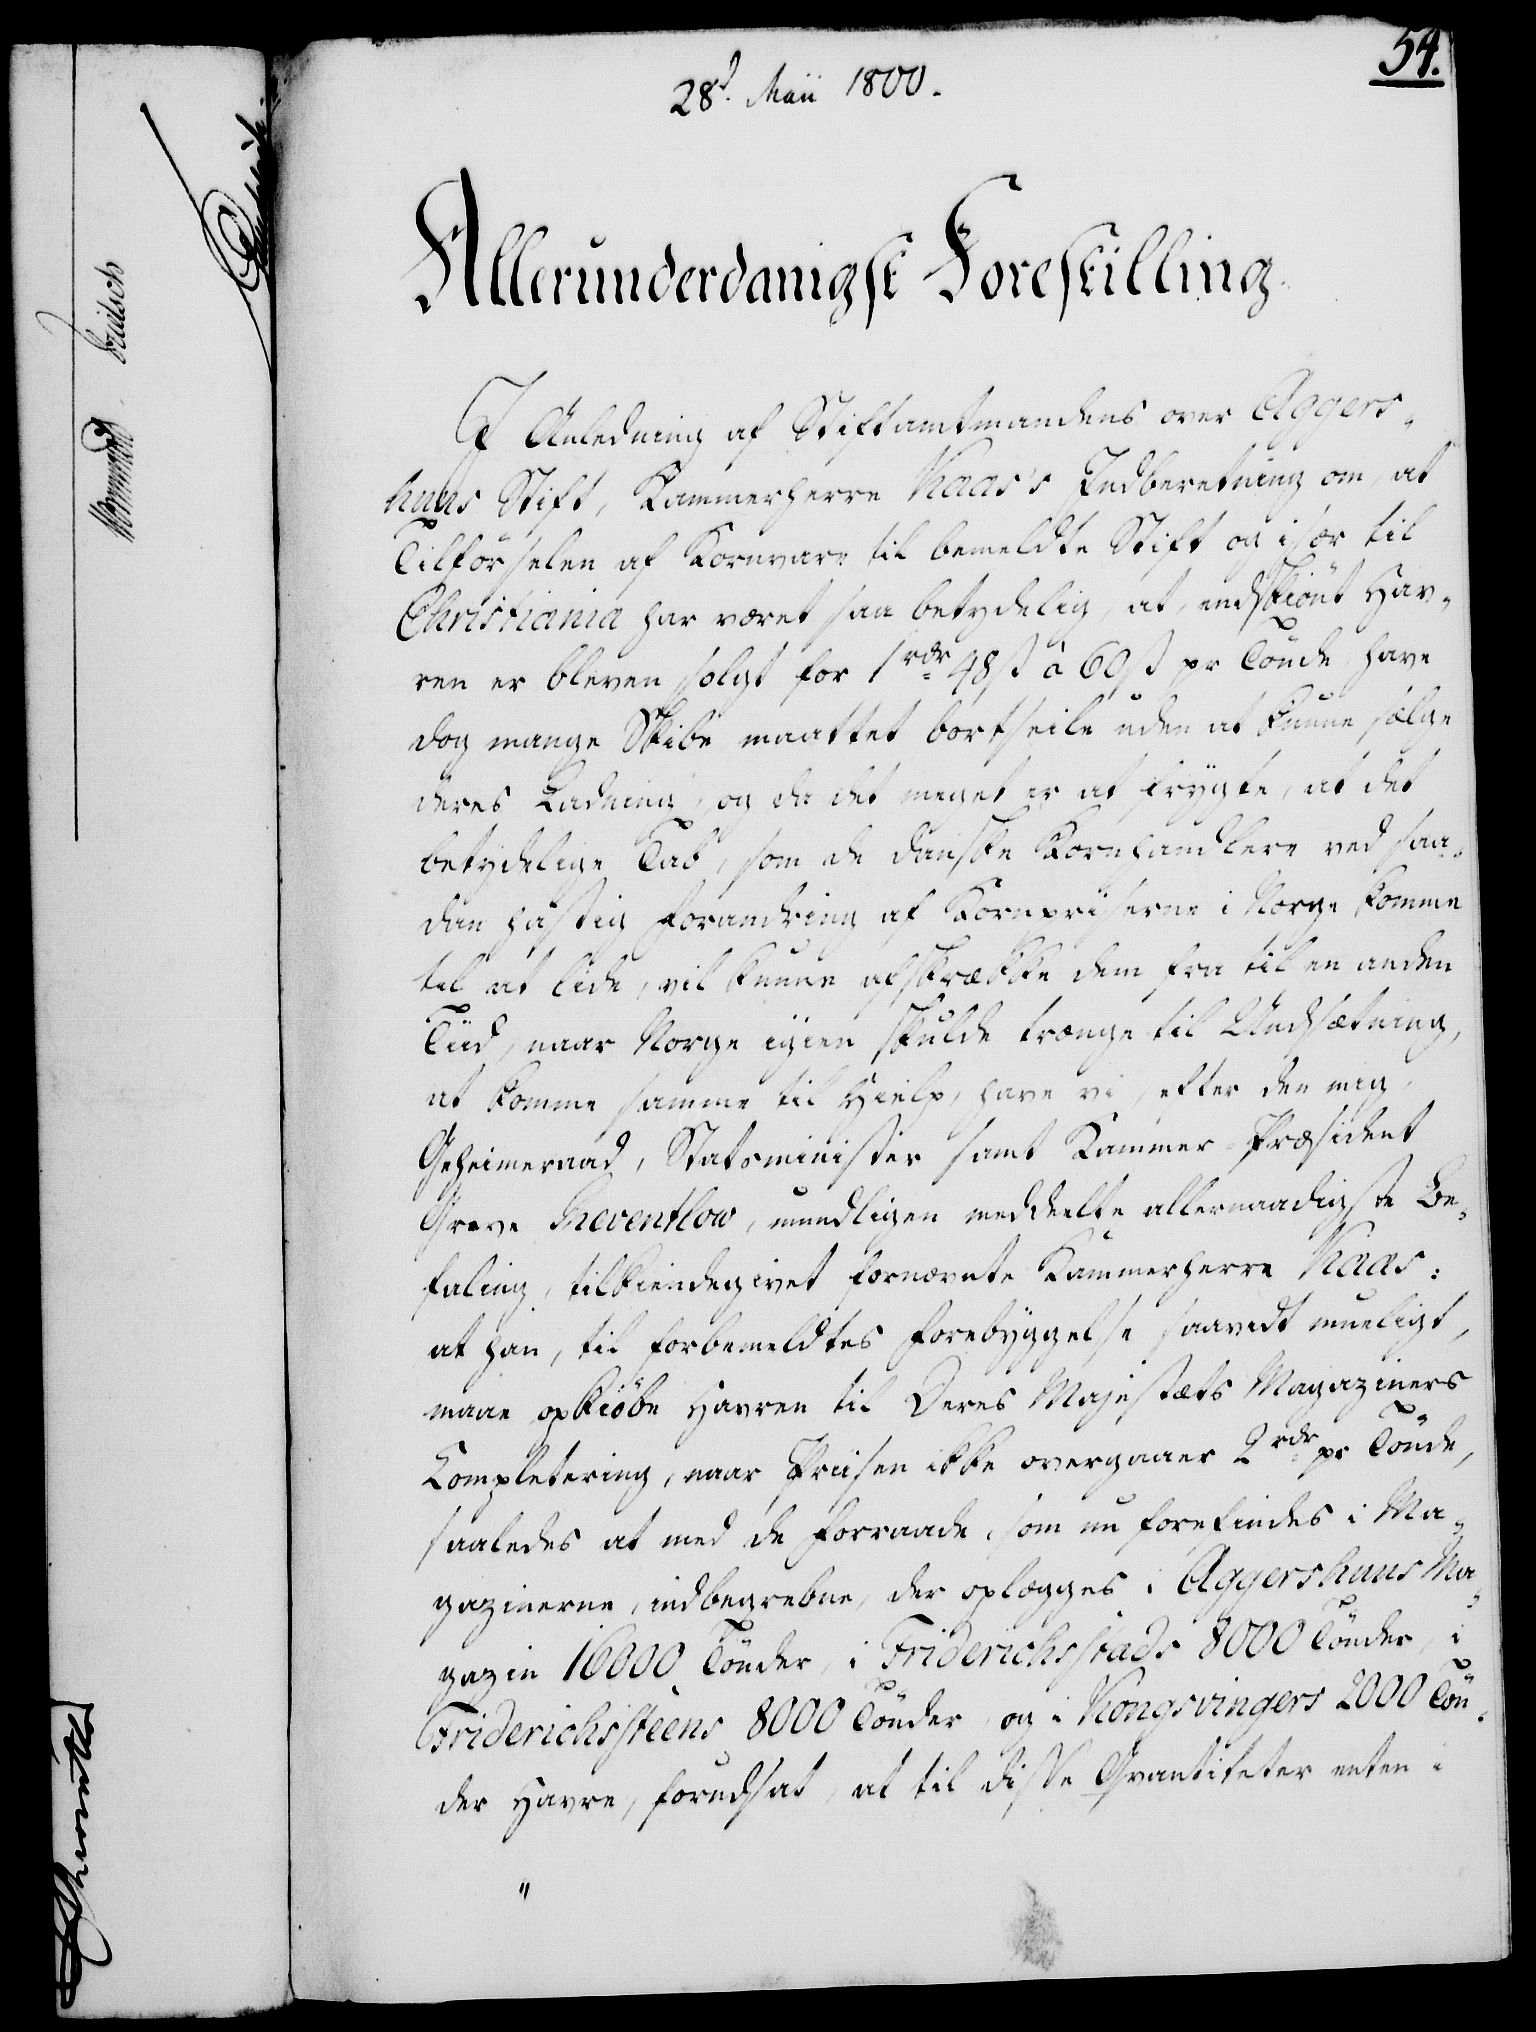 54.
28d. Maii 1800.
Allerunderdanigst Forestilling.
I Anledning af Stiftamtmandens over Aggers-
huus Stift, Kammerherre Kaas's Indberetning om, at
Tilförselen af Kornvare til bemeldte Stift og især til
Christiania har været saa betydelig, at, endskiönt Hav-
ren er bleven solgt for 1rdr 48ß à 60ß pr Tönde, have
dog mange Skibe maattet bortseile uden at kunne sælge
deres Ladning, og da det meget er at frygte, at det
betydelige Tab, som de danske Kornhandlere ved saa-
dan hastig Forandring af Kornpriserne i Norge komme
til at lide, vil kunne afskrække dem fra til en anden
Tiid, naar Norge igien skulde trænge til Undsætning,
at komme samme til Hielp, have vi, efter den mig,
Geheimeraad, Statsminister samt Kammer-Præsident
Greve Reventlow, mundligen meddeelte allernaadigste Be-
faling, tilkiendegivet fornævnte Kammerherre Kaas:
at han, til forbemeldtes Forebyggelse saavidt mueligt,
maae opkiöbe Havren til Deres Majestæts Magaziners
Completering, naar Priisen ikke overgaaer 2rdr pr Tönde,
saaledes at med de Forraade, som nu forefindes i Ma-
gazinerne, indbegrebne, der oplægges i Aggershuus Ma-
gazin 16000 Tönder, i Friderichsstads 8000 Tönder, i
Friderichssteens 8000 Tönder, og i Kongsvingers 2000 Tön-
der Havre, forudsat, at til disse Qvantiteter enten i
"